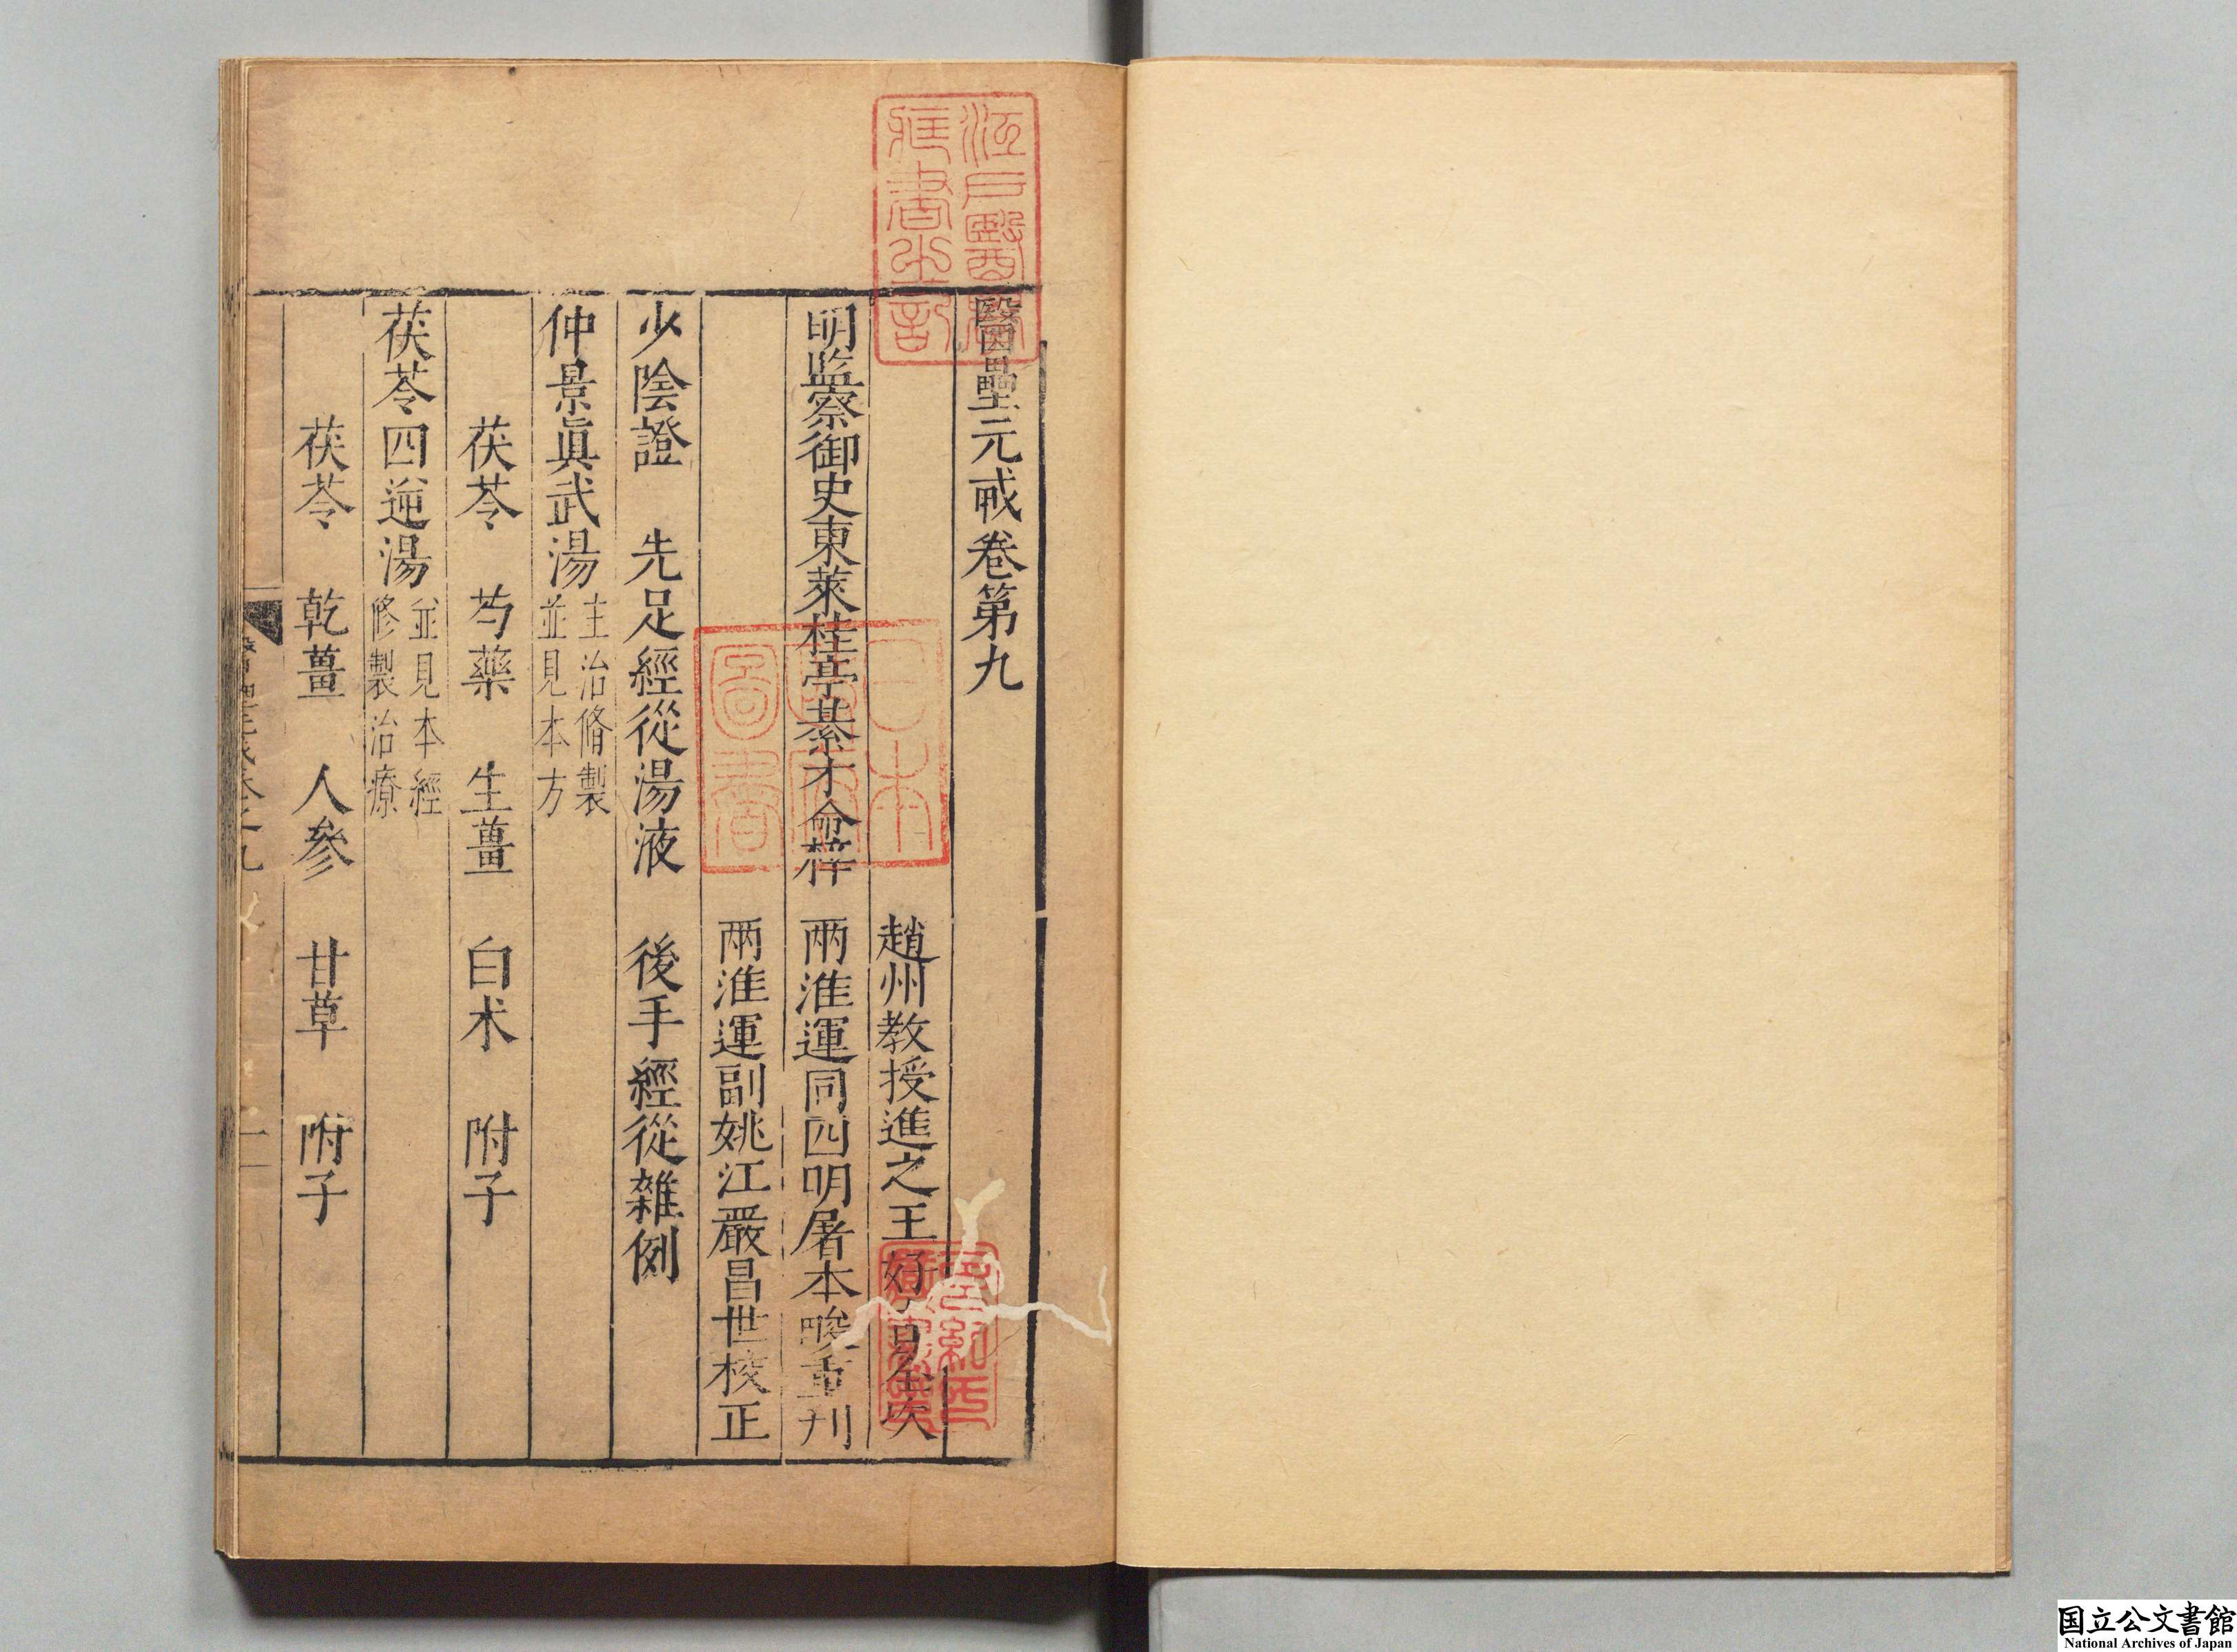 醫壘元戒卷第九
趙州教授進之王好古
明監察御史東萊桂亭綦才命梓 兩淮運同四明屠本畯重刊
兩淮運副姚江嚴昌世校正
少陰證 先足經從湯液 後手經從雜例
仲景眞武湯 主治脩製
並見本方
茯苓 芍藥 生薑 白朮 附子
茯苓四逆湯 並見本經
修製治療
茯苓 乾薑 人參 甘草 附子
江戶醫學
藏書之記
日本
圖書
国立公文書館
National Archives of Japan